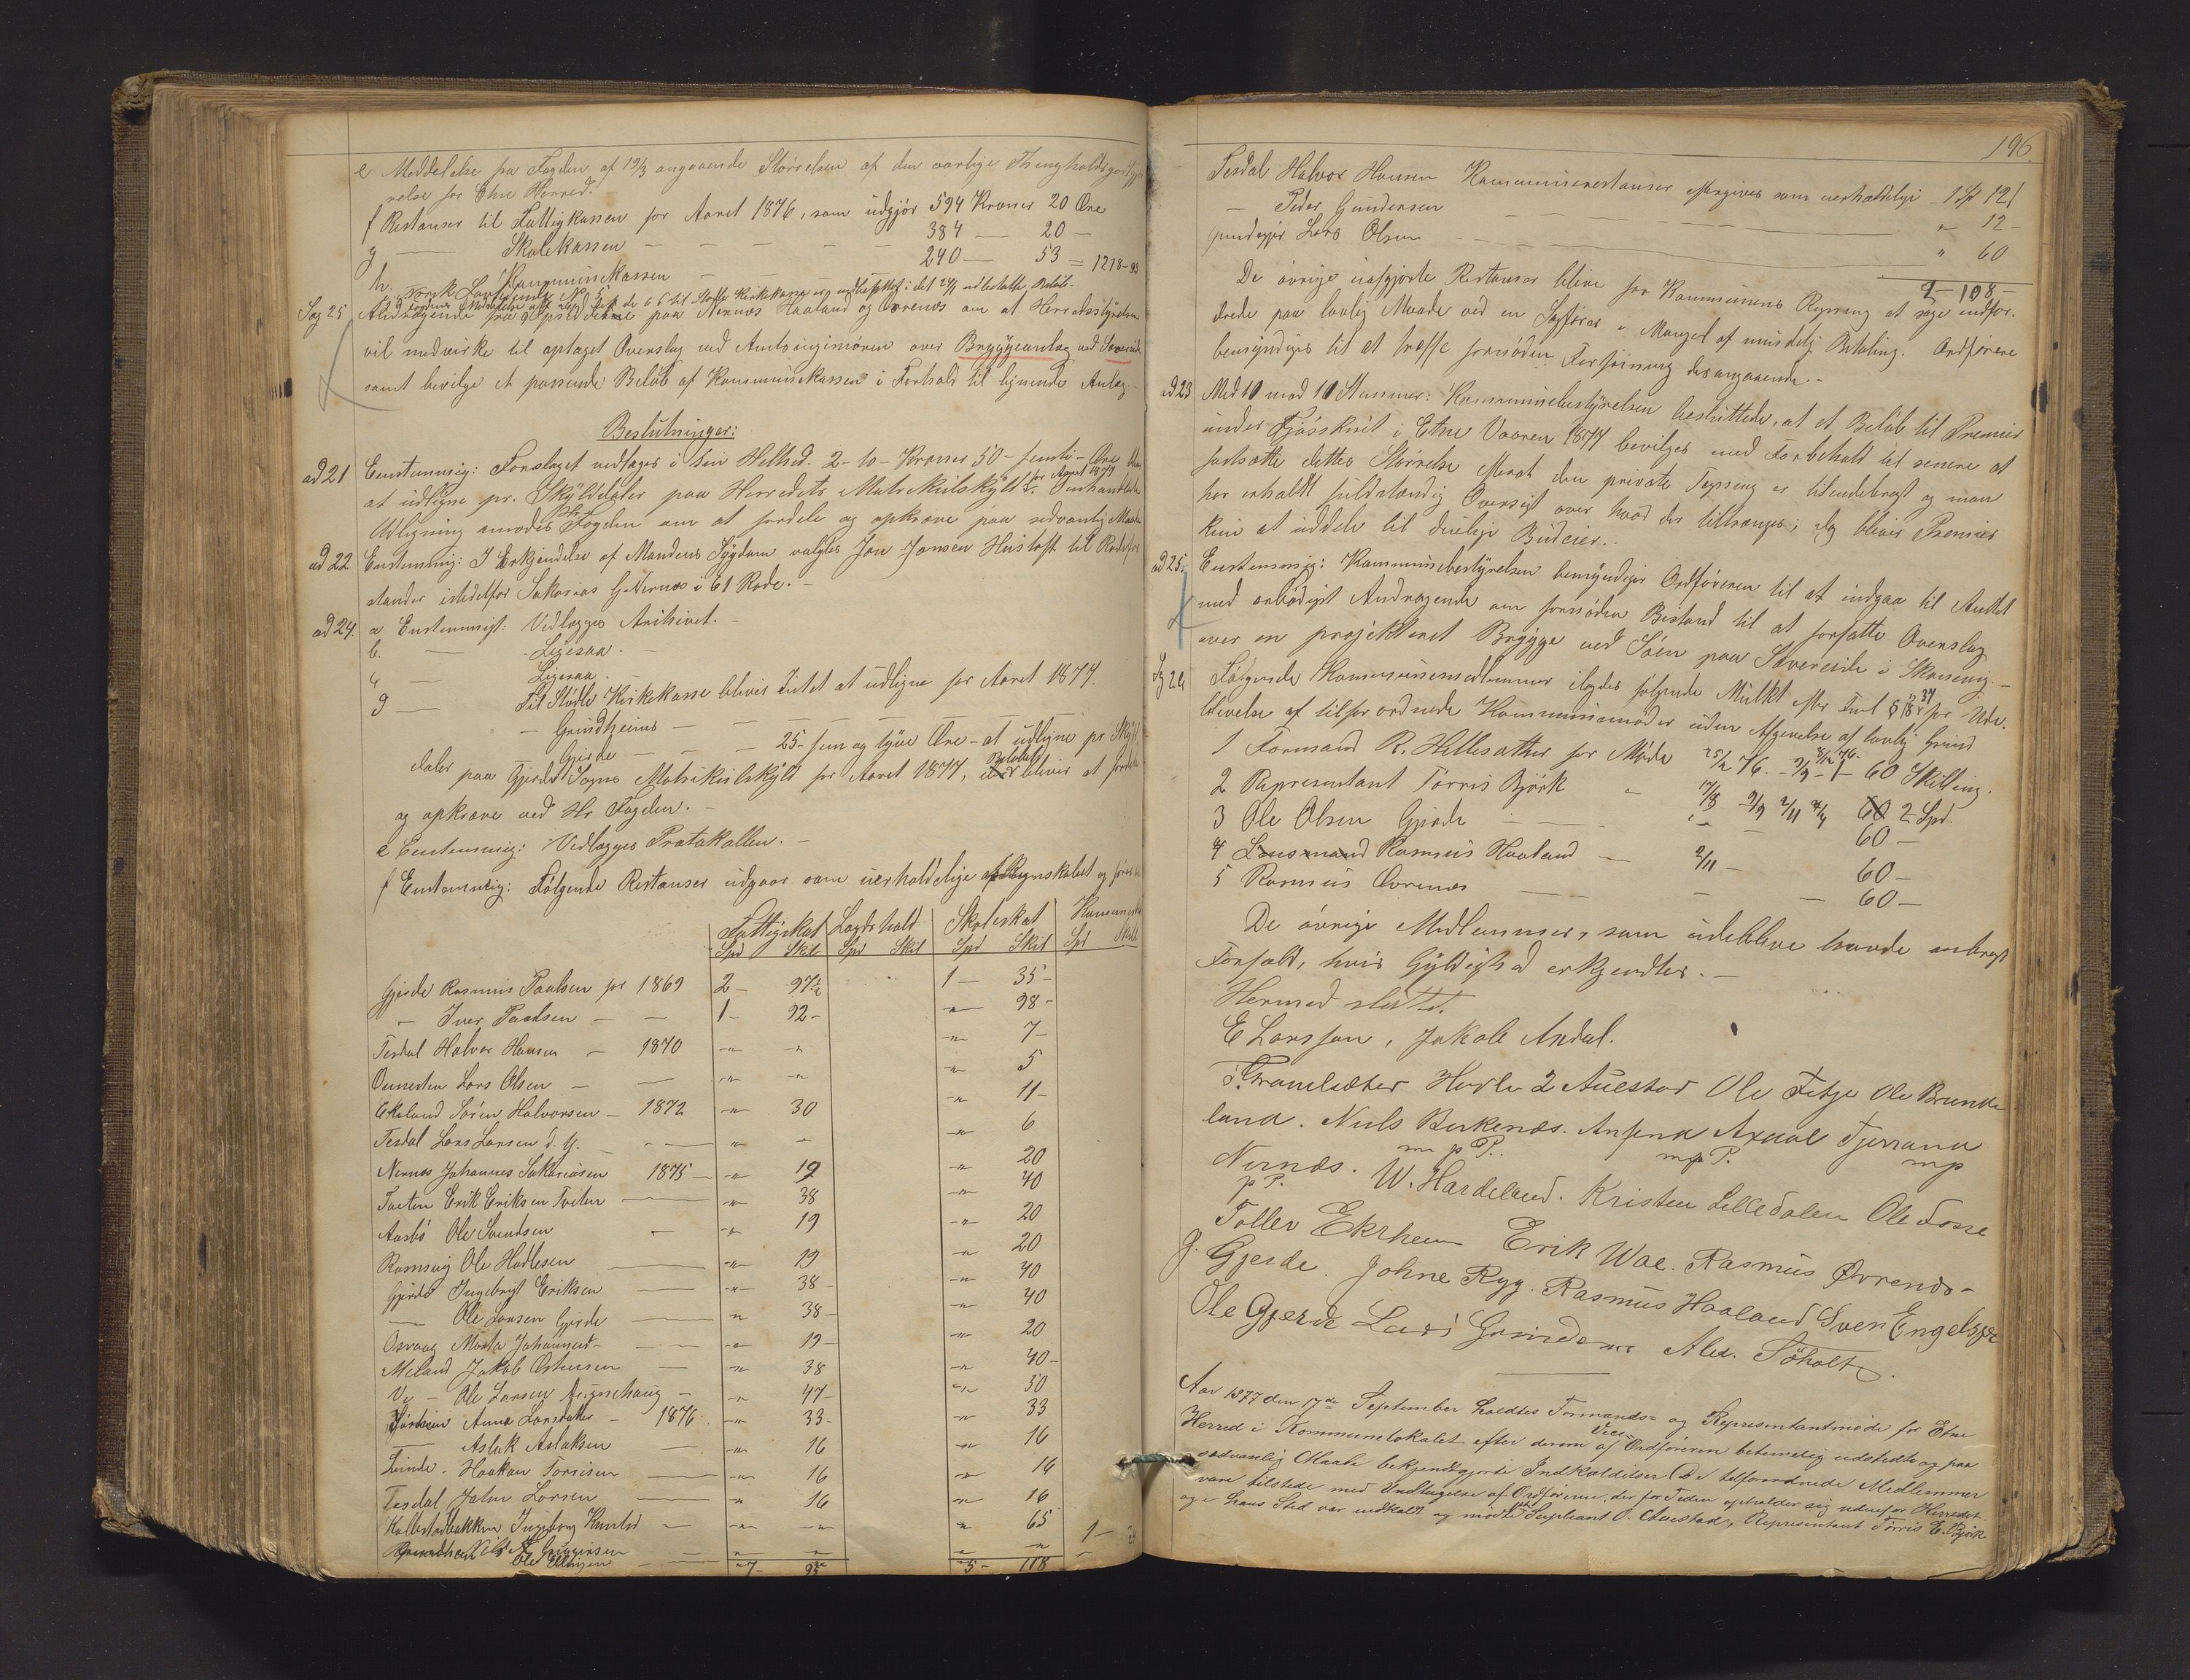 e Meddelelse fra Fogden af 19/3 angaaende Størrelsen af den aarlige Thingholdsgodtgjø
relse for Etne Herred.
f Restanser til Fattigkassen for Aaret 1876, som udgjør 594 Kroner 20 Øre
g — Skolekassen — — — — 384 — 20 —
h. — Kommunekassen — — — 240 — 53 = 1218-93
Sag 25 Andragende fra Opsidderne paa Nernæs Haaland og Øvrenæs om at Herredsstyrelsen
vil medvirke til optaget Overslag ved Amtsingeniøren over Bryggeanlæg ved Sævereide
samt bevilge et passende Beløb af Kommunekassen i Forhold til lignende Anlæg.
Beslutninger:
ad 21 Eenstemmig: Forslaget vedtages i sin Helhed. 2 - to - Kroner 50 - femti - Øre bliver
at udligne pr. Skylddaler paa Herredets Matrikulskyld for Aaret 1877. Omhandlede
Udligning anmodes Hr Fogden om at fordele og opkræve paa sedvanlig Maade
ad 22 Eenstemmig: I Erkjendelse af Mandens Sygdom valgtes Jon Jansen Hustoft til Rodefor
stander istedetfor Sakarias G. Nernæs i 61 Rode. —
ad 24. a Eenstemmigt: Vedlægges Arkivet. —
b. — Ligesaa. —
c — Ligesaa.
g — Til Stødle Kirkekasse bliver Intet at udligne for Aaret 1877.
— Grindheims — — — — — —
— Gjerde — — — 25 - fem og tyve Øre - at udligne pr Skyld
daler paa Gjerde Sogns Matrikulskyld for Aaret 1877, Beløbet bliver at fordele
og opkræve ved Hr Fogden. —
e Eenstemmig: Vedlægges Protokollen. —
f Eenstemmig: Følgende Restanser udgaar som uerholdelige af Regnskabet og
Fattigskat Lægdshold Skoleskat Kommuneskat
Spd Skil Spd Skil Spd Skil Spd Skil
Gjerde Rasmus Paulsen for 1869 2 - 97½ 1 — 35 -
— Iver Paulsen — — 1 - 92 - " 98 -
Tesdal Halvor Hansen — 1870 " " " 7 -
Lars Olsen — — " " " 5
Ekeland Søren Halvorsen — 1872 " 30 " 11 -
Tesdal Lars Larsen d. y. — — " - " 6
Nernæs Johannes Sakariasen 1875 — " 19 " 20
Tveten Erik Eriksen Tveten — " 38 " 40
Aasbø Ole Svendsen — " 19 " 20
Ramsvig Ole Hadlesen — " 19 " 20
Gjerde Ingebrigt Eriksen — " 38 - " 40
— Ole Larsen Gjerde — " 38 - " 40
Osvaag Marta Johannesd - — " 19 - " 20
Meland Jakob Østensen — " 38 " 40 -
Ve — Ole Larsen — " 47 - " 50
Anna Larsdatter — 1876 " 33 - " 33
— Aslak Aslaksen — " 16 " 16
Haakon Torrisen — " 16 " 16
Tesdal John Larsen — " 16 " 16
Kallestadbakken Ingeborg — " — " 65 1 -
Ole Ellingsen — 7 - 93½ 5 - 118
196.
Tesdal Halvor Hansen Kommunerestanser eftergives som uerholdelige — 1 Sp 12 s
— Peder Gundersen — — — " 12 -
Lars Olsen — — — " 60
2 — 108 -
De øvrige uafgjorte Restanser blive for Kommunens Regning at søge inddre
drede paa lovlig Maade ved en Sagfører i Mangel af mindelig Betaling. Ordføreren
bemyndiges til at træffe fornøden Forføining desangaaende. —
ad 23 Med 10 mod 10 Stemmer: Kommunebestyrelsen besluttede, at et Beløb til Premier
under Fjøsskuet i Etne Vaaren 1877 bevilges med Forbehold til senere at
fastsætte dettes Størrelse efterat den private Tegning er tilendebragt og man
har erholdt fuldstændig Oversigt over hvad der tiltrænges; dog bliver Premier
kun at uddele til duelige Budeier. —
ad 25. Eenstemmig: Kommunebestyrelsen bemyndiger Ordføreren til at indgaa til Amtet
med ærbødigst Andragende om fornøden Bistand til at forfatte Overslag
over en projekteret Brygge ved Søen paa Sævereide i Skonevig. —
Følgende Kommunemedlemmer ilagdes følgende Mulkt efter Lov § 34 for Ude-
blivelse af tilforordnede Kommunemøder uden Afgivelse af lovlig Grund
1 Formand R. Hellesæther for Møde 25/2 76. — 60 Skilling.
2 Representant Torris Bjørk " 17/8 9/9 2/11 4/4 2 Spd.
3 Ole Olsen Gjerde — — — 60 —
4 Rasmus Haaland — 2/11 — 60 —
5 Rasmus Øvrenæs — — — 60 —
De øvrige Medlemmer, som udebleve havde anbragt
Forfald, hvis Gyldighed erkjendtes. —
Hermed sluttet.
E Larssen, Jakob Andal.
T. Framlæther Hadle Auestad Ole Fitje Ole Brunde
land. Niels Birkenæs. Axdal Tjerrana
m p P. m p P. m p
Nernæs. W. Hardeland. Kristen Lilledalen Ole Fosse
p P.
Tollev Ekrheim Erik Wae. Rasmus Øvrenæs —
J. Gjerde. Johne Ryg. Rasmus Haaland Sven Engelsgje
Ole Gjerde Lars Alex. Tøholt.
Aar 1877 den 17de September holdtes Formands- og Representantmøde for Etne
Herred i Kommunelokalet efter derom af Vice-Ordføreren betimelig udstedte og paa
sædvanlig Maade bekjendtgjorte Indkaldelser. De tilforordnede Medlemmer
vare tilstede med Undtagelse af Ordføreren, der for Tiden opholder sig udenfor Herredet
og i hans Sted var indkaldt og mødte Supleant O. Auestad, Representant Tørris E. Bjørk